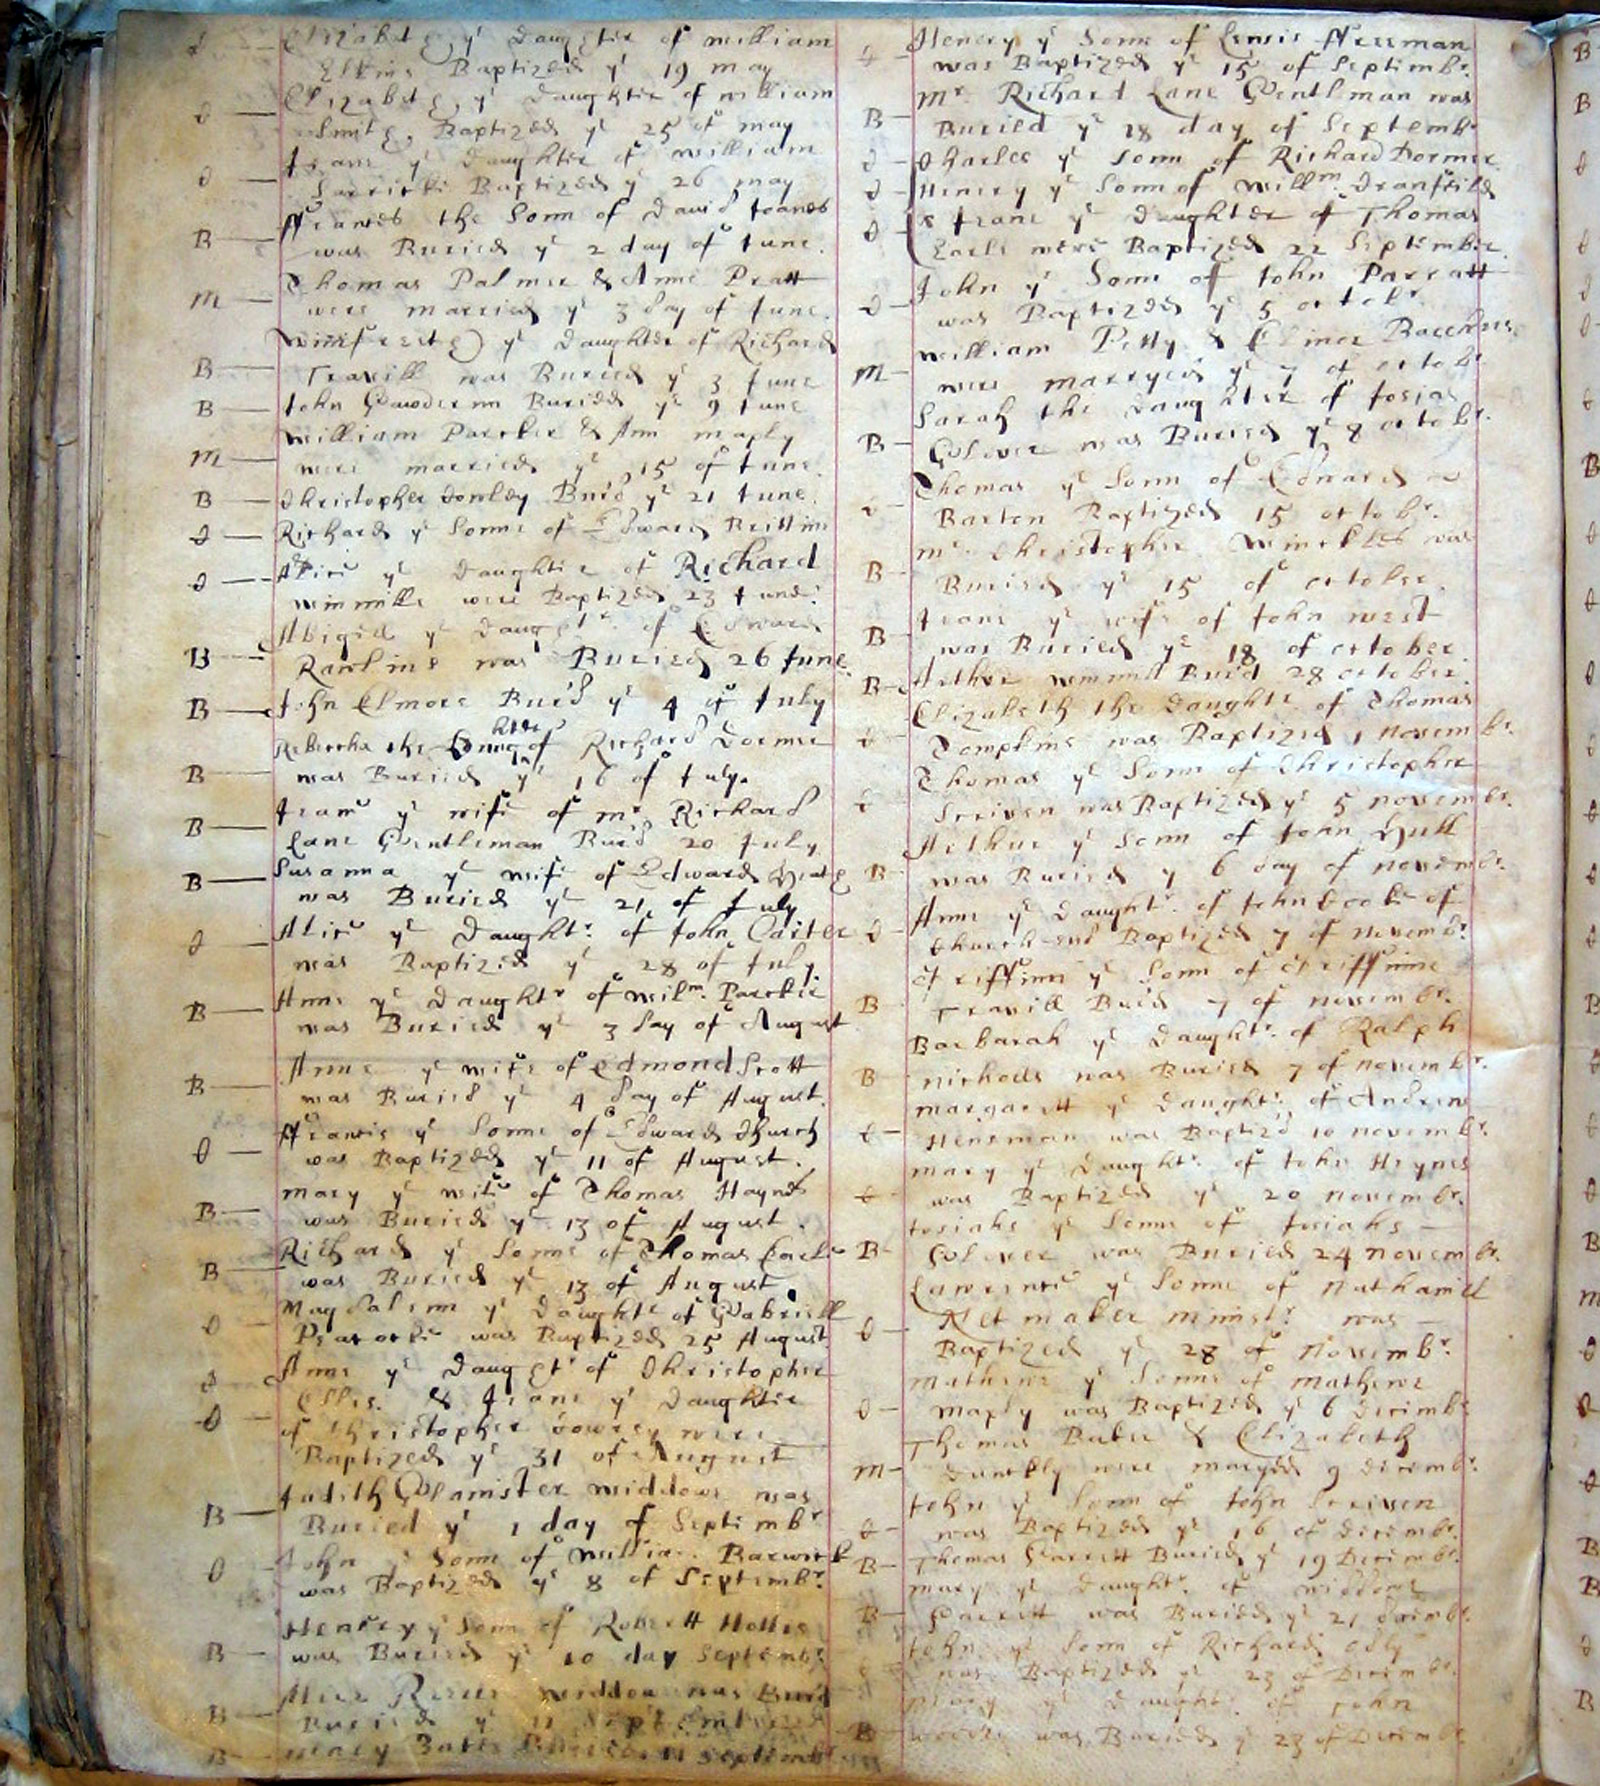 Elizabeth yᵉ Daughter of william
Elkins Baptized yᵉ 19 may
Elizabeth yᵉ Daughter of william
Smith Baptized yᵉ 25 of may
Jeane yᵉ Daughter of william
Baptized yᵉ 26 may
ffrances the Sonn of David Joanes
B was Buried yᵉ 2 day of June.
Thomas Palmer & Anne Pratt
M were married yᵉ 3 day of June.
yᵉ Daughter of Richard
B Travill was Buried yᵉ 3 June
B John Buried yᵉ 9 June
william Parcker & Ann maply
M were married yᵉ 15 of June.
B Christopher Burᵈ yᵉ 21 June.
Richard yᵉ Sonne of Edward Brittine
Alice yᵉ Daughter of Richard
wimmills were Baptized 23 June.
Abigell yᵉ Daughtʳ. of Edward
B Rawlins was Buried 26 June.
B John Elmore Bur'd yᵉ 4 of July
Rebeccka the Daughter of Richard Dormer
B was Buried yᵉ 16 of July.
Jeane yᵉ wife of mʳ. Richard
B Lane Gentleman Bur'd 20 July
B Susanna yᵉ wife of Edward
was Buried yᵉ 21 of July
Alice yᵉ Daughtʳ. of John Carter
was Baptized yᵉ 28 of July.
Anne yᵉ Daughtʳ of wilᵐ. Parcker
B was Buried yᵉ 3 day of August
Anne yᵉ wife of Edmond Scott
B was Buried yᵉ 4 day of August.
ffrancis yᵉ Sonne of Edward Church
was Baptized yᵉ 11 of August.
mary yᵉ wife of Thomas Haynes
B was Buried yᵉ 13 of August.
Richard yᵉ Sonne of Thomas Earle
B was Buried yᵉ 13 of August
Magdalenn yᵉ Daughtᵉ of Gabriell
Peacocke was Baptized 25 August.
Anne yᵉ Daughtʳ of Christopher
Ellis. & Jeane yᵉ Daughter
of Christopher were
Baptized yᵉ 31 of August
Judith Glanister widdow was
B Buried yᵉ 1 day of Septembʳ
John yᵉ Sonn of William Barwick
was Baptized yᵉ 8 of Septembʳ.
Henrey yᵉ Sonn of Robertt Hollis
B was Buried yᵉ 10 day Septembʳ
widdow was Buried
B Buried yᵉ 11 September
B Mary Bates Buried 11 September
Henery yᵉ Sonn of Lewis ffreeman
was Baptized yᵉ 15 of Septembʳ.
Mʳ. Richard Lane Gentlman was
B Buried yᵉ 18 day of Septembʳ
Charles yᵉ Sonn of Richard Dormer
Henery yᵉ Sonn of Willᵐ. Dranfeild
& Jeane yᵉ Daughter of Thomas
Earle were Baptized 22 September.
John yᵉ Sonn of John Parratt
was Baptized yᵉ 5 octobʳ.
william Petty & Elinor Bacchus
M were marryed yᵉ 7 of octobʳ
Sarah the Daughter of Josias
B Glover was Buried yᵉ 8 octobʳ.
Thomas yᵉ Sonn of Edward
Barten Baptized 15 octobʳ.
mʳ. Christopher Winckles was
B Buried yᵉ 15 of october.
Jeane yᵉ wife of John west
B was Buried yᵉ 18 of october
B Arthur wimmill Bur'd 28 october.
Elizabeth the Daughtʳ of Thomas
Tompkins was Baptized 1 Novembʳ.
Thomas yᵉ Sonn of Christopher
Scriven was Baptized yᵉ 5 novembʳ.
Arthur yᵉ Sonn of John Hull
B was Buried yᵉ 6 day of novembʳ.
Anne yᵉ Daughtʳ. of John Cooke of
Church end Baptized 7 of novembʳ.
Griffinn yᵉ Sonn of Griffinne
B Travill Bur'd 7 of novembʳ.
Barbarah yᵉ Daughtʳ. of Ralph
B nicholls was Buried 7 of novembʳ.
margarett yᵉ Daughtʳ. of Andrew
Hensman was Baptiz'd 10 novembʳ.
mary yᵉ Daughtʳ. of John Heynes
was Baptized yᵉ 20 novembʳ.
Josiahs yᵉ Sonne of Josiahs
B Glover was Buried 24 novembʳ.
Lawrence yᵉ Sonne of Nathaniell
Netmaker ministʳ was
Baptized yᵉ 28 of Novembʳ.
Mathewe yᵉ Sonne of mathewe
maply was Baptized yᵉ 6 Decembʳ
Thomas Baker & Elizabeth
M Dunckly were maryed 9 Decembʳ.
John yᵉ Sonn of John Scriven
was Baptized yᵉ 16 of Decembʳ.
B Thomas Garrett Buried yᵉ 19 Decembʳ.
mary yᵉ Daughtʳ. of widdowe
B Garrett was Buried yᵉ 21 Decmbʳ.
John yᵉ Sonn of Richard
was Baptized yᵉ 23 of Decembʳ.
Mary yᵉ Daughtʳ of John
B was Buried yᵉ 23 of Decembʳ